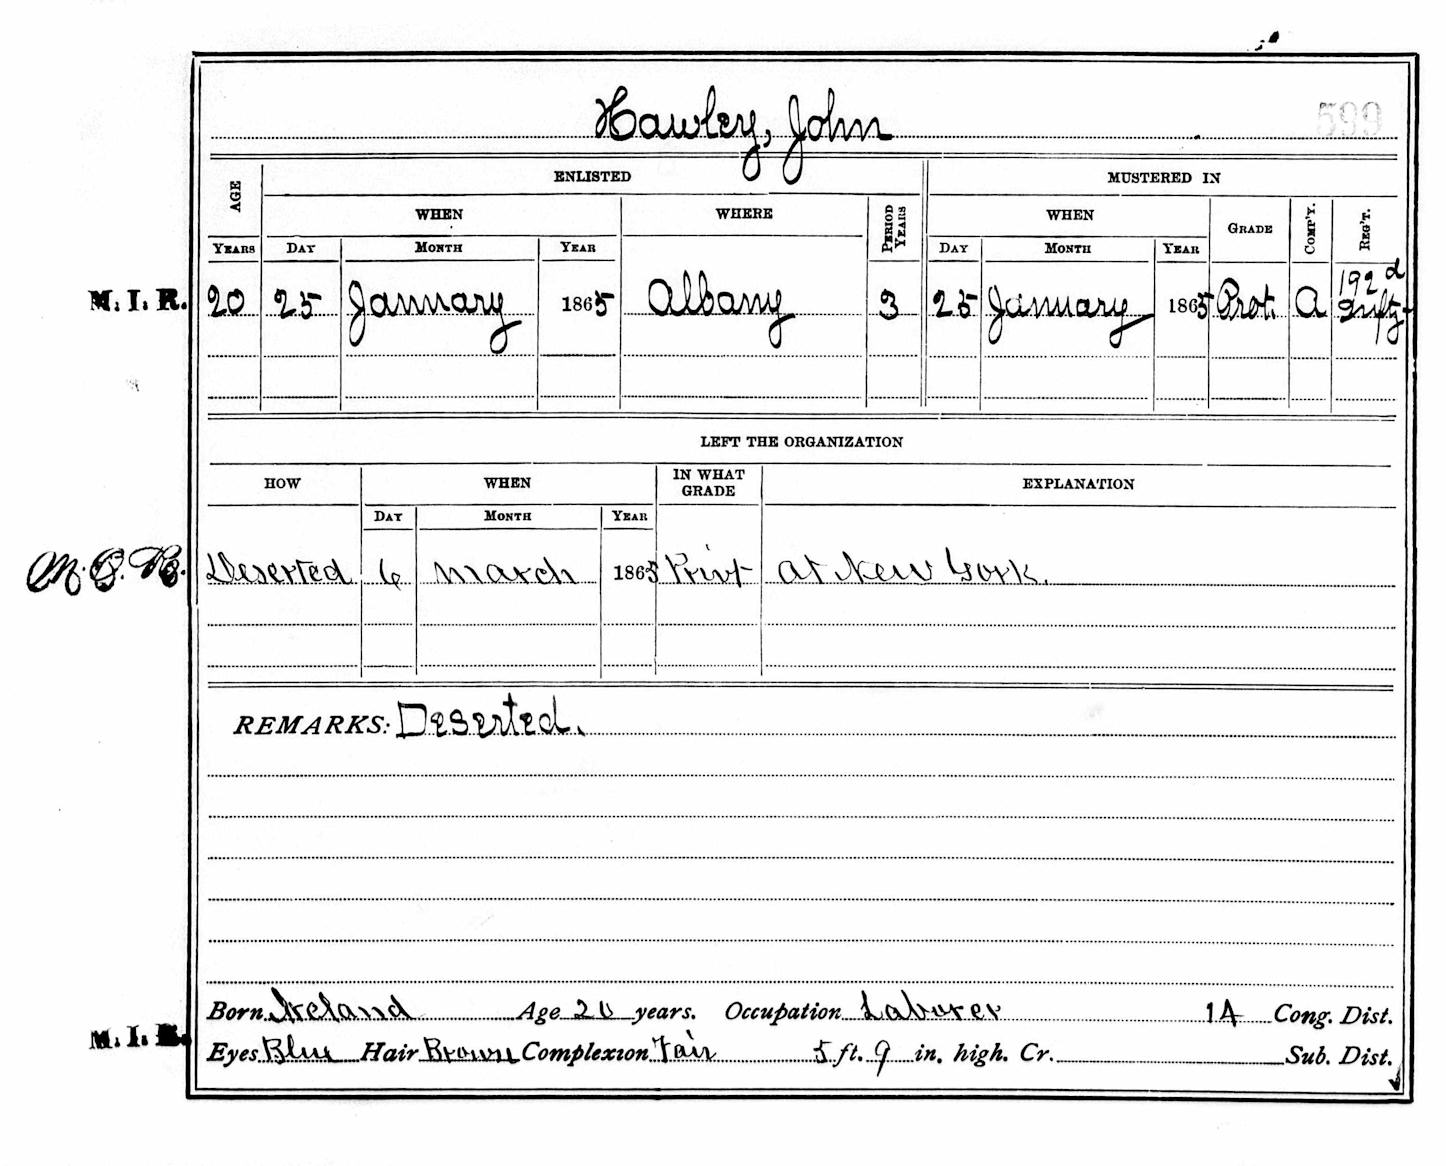 Hawley, John 599
AGE ENLISTED MUSTERED IN
WHEN WHERE PERIOD YEARS WHEN GRADE COMP'Y. REG'T.
YEARS DAY MONTH YEAR DAY MONTH YEAR
M. I. R. 20 25 January 1865 Albany 3 25 January 1865 Prvt. A 192d Infty
LEFT THE ORGANIZATION
HOW WHEN IN WHAT GRADE EXPLANATION
DAY MONTH YEAR
Deserted 6 March 1865 Privt at New York.
REMARKS: Deserted.
Born Ireland Age 20 years. Occupation Laborer 14 Cong. Dist.
M. I. R. Eyes Blue Hair Brown Complexion Fair 5 ft. 9 in. high. Cr. Sub. Dist.